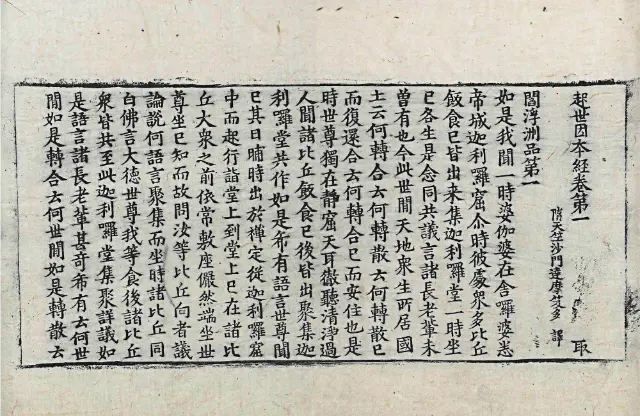 起世因本經卷第一　取
隋天竺沙門達摩笈多　譯
閻浮洲品第一
如是我聞一時婆伽婆在舍囉婆悉
帝城迦利囉窟尒時彼處衆多比丘
飯食已皆出来集迦利囉堂一時坐
已各生是念同共議言諸長老輩未
曾有也今此世間天地衆生所居國
土云何轉合云何轉散云何轉散已
而復還合云何轉合已而安住也是
時世尊獨在靜窟天耳徹聽清淨過
人聞諸比丘飯食已後皆出聚集迦
利囉堂共作如是希有語言世尊聞
已其日晡時出於禪定從迦利囉窟
中而起行詣堂上到堂上已在諸比
丘大衆之前依常敷座儼然端坐世
尊坐已知而故問汝等比丘向者議
論說何語言聚集而坐時諸比丘同
白佛言大德世尊我等食後諸比丘
衆皆共至此迦利囉堂集聚詳議如
是語言諸長老輩甚奇希有云何世
間如是轉合云何世間如是轉散云